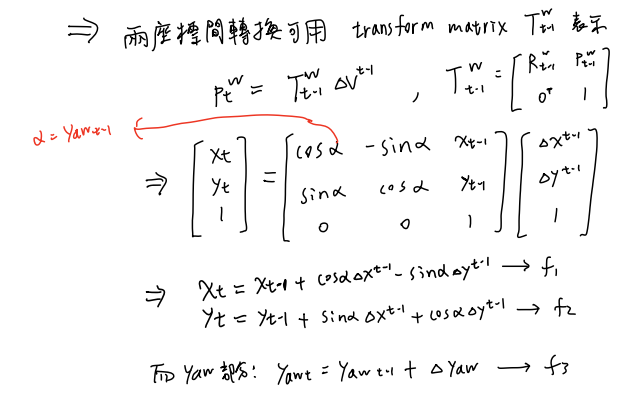 ⇒ 兩座標間轉換可用 transform matrix T_{t-1}^{w} 表示
P_t^w = T_{t-1}^w ΔV^{t-1} , T_{t-1}^w = [ R_{t-1}^w P_{t-1}^w ; 0^T 1 ]
α = Yaw_{t-1}
⇒ [ x_t ; y_t ; 1 ] = [ cosα -sinα x_{t-1} ; sinα cosα y_{t-1} ; 0 0 1 ] [ Δx^{t-1} ; Δy^{t-1} ; 1 ]
⇒ x_t = x_{t-1} + cosαΔx^{t-1} - sinαΔy^{t-1} → f_1
y_t = y_{t-1} + sinαΔx^{t-1} + cosαΔy^{t-1} → f_2
而 yaw 部分: yaw_t = yaw_{t-1} + Δyaw → f_3